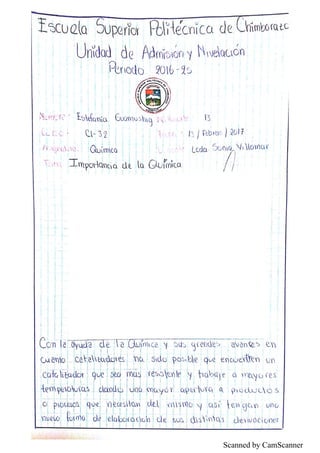 Escuela Superior Politécnica de Chimborazo
Unidad de Admisión y Nivelación
Período 2016-2s
Nombre: Estefania Guamushig 13
CI-32 13 / Febrero / 2017
Asignatura: Química Lcda Sonia Villamar
Tema: Importancia de la Química
Con la ayuda de la Química y sus grandes avances en
cuanto catalizadores ha sido posible que encuentren un
catalizador que sea mas resistente y trabaje a mayores
temperaturas dando una mayor apertura a productos
o procesos que necesitan del mismo y así tengan una
nueva forma de elaboración de sus distintas derivaciones
Scanned by CamScanner